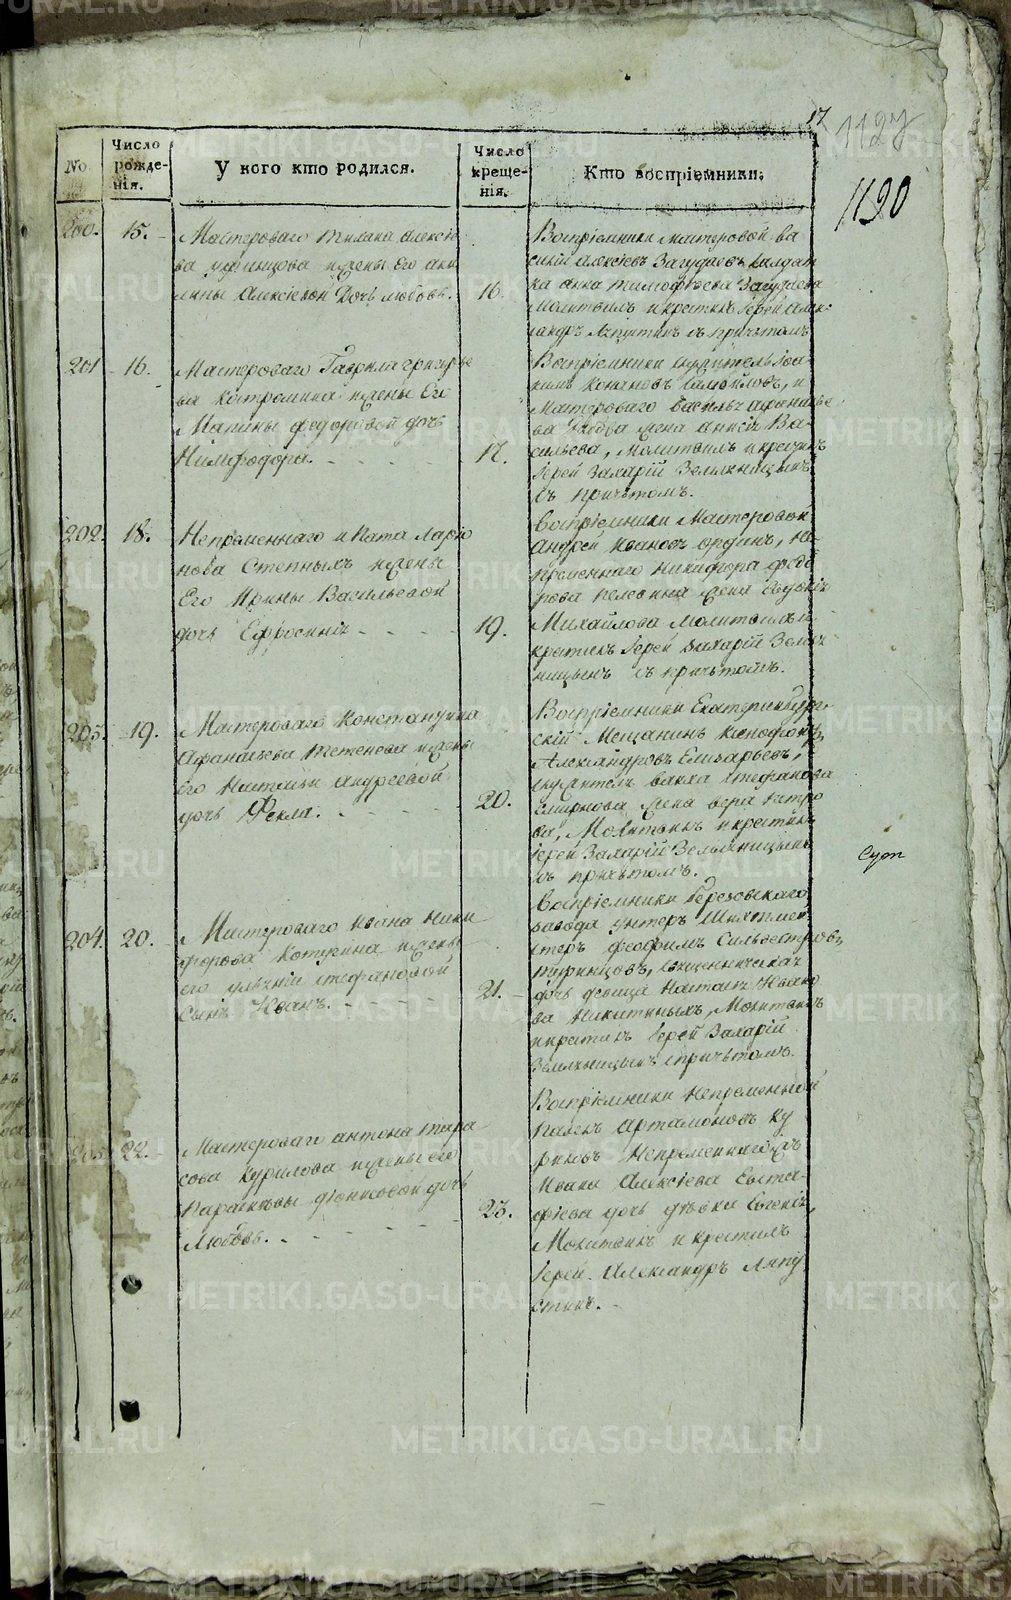 17
1127
1190
No.
Число рожде-нія.
У кого кто родился.
Число креще-нія.
Кто воспріемники.
200.
15.
Мастероваго Тихана Алексіе
ва уфинцова и жены Его аку
лины Алексіевой Дочь любовь.
16.
Воспріемники мастеровой ва
силій алексіевъ Загудаевъ салдат
ка анна тимофѣева Загудаева
Молитвилъ и крестилъ Іерей Алек-
сандръ Ляпустинъ съ причтомъ
201
16.
Мастероваго Гаврила григорье
ва Костромина и жены Его
Марины федоровой дочь
Нимфодора.
17.
Воспріемники Іоа-
кимъ Самойловъ, и
Мастероваго Василья афанасье
ва жена анисья Ва-
сильева, Молитвилъ и крестилъ
Іерей Захарій Земляницынъ
съ причтомъ.
202.
18.
Непременнаго ипата Ларіо
нова Степныхъ и жены
Его Ирины Васильевой
дочь Ефросинія
19.
Воспріемники Мастеровой
Андрей Ивановъ ординъ, не-
пременнаго Никифора федо
рова жена Евдокія
Михайлова Молитвилъ и
крестилъ Іерей Захарій Земля
ницынъ съ причтомъ.
203.
19.
Мастероваго Константина
Афанасьева Тетенева и жены
его Настасьи андреевой
дочь Фекла.
20.
Воспріемники Екатеринбург-
скій Мещанинъ ксенофонтъ
Александровъ Елизарьевъ,
вакха стефанова
Смирнова жена вера петро
ва, Молитвилъ и крестилъ
Іерей Захарій Земляницынъ
съ причтомъ.
204.
20.
Мастероваго Ивана Ники
форова Котугина и жены
его ульяніи стефановой
Сынъ Иванъ.
21.
Воспріемники березовскаго
завода унтеръ Шихтмей-
стеръ феофимъ Сильвестровъ
туринцовъ, священническая
дочь девица Наталія Ивано
ва Никитиныхъ, Молитвилъ
и крестилъ Іерей Захарій
Земляницынъ с причтомъ.
205.
22.
Мастероваго антона тара
сова Курилова и жены его
Парасковьи дочь
Любовь.
23.
Воспріемники Непременный
Павелъ Артамоновъ Ку
риловъ Непременнаго
Ивана Алексіева Евста-
фіева дочь дѣвка Евгенія,
Молитвилъ и крестилъ
Іерей Александръ Ляпу
стинъ.
METRIKI.GASO-URAL.RU